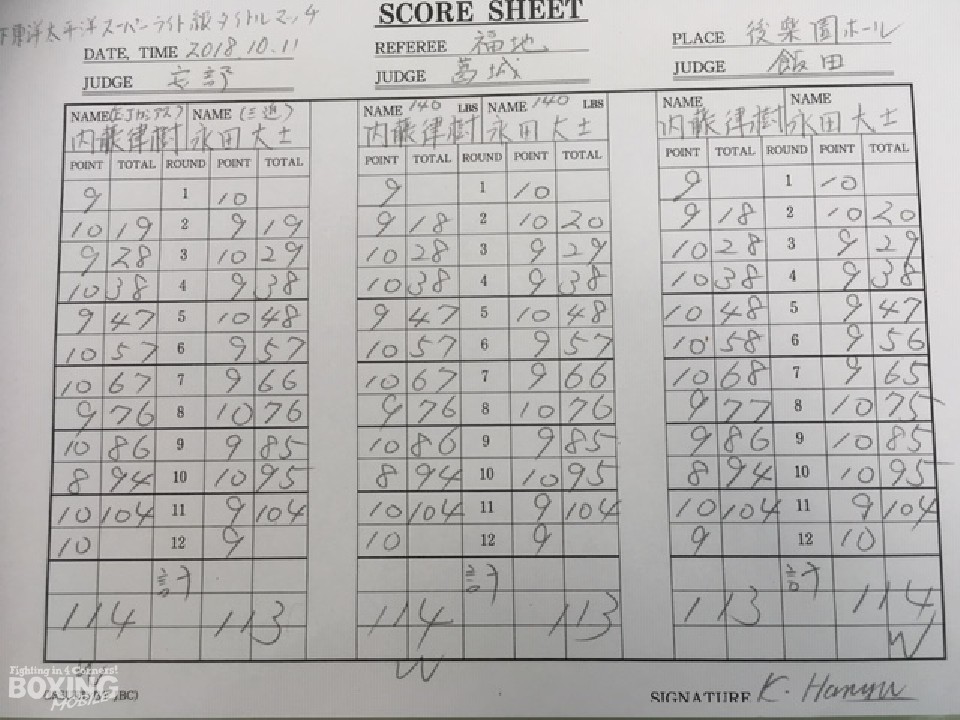 東洋太平洋スーパーライト級タイトルマッチ
SCORE SHEET
DATE, TIME 2018.10.11
REFEREE 福地
PLACE 後楽園ホール
JUDGE
JUDGE 葛城
JUDGE 飯田
NAME NAME NAME 140 LBS NAME 140 LBS NAME NAME
内藤律樹 永田大士 内藤律樹 永田大士 内藤律樹 永田大士
POINT TOTAL ROUND POINT TOTAL POINT TOTAL ROUND POINT TOTAL POINT TOTAL ROUND POINT TOTAL
9 1 10 9 1 10 9 1 10
10 19 2 9 19 9 18 2 10 20 9 18 2 10 20
9 28 3 10 29 10 28 3 9 29 10 28 3 9 29
10 38 4 9 38 10 38 4 9 38 10 38 4 9 38
9 47 5 10 48 9 47 5 10 48 10 48 5 9 47
10 57 6 9 57 10 57 6 9 57 10 58 6 9 56
10 67 7 9 66 10 67 7 9 66 10 68 7 9 65
9 76 8 10 76 9 76 8 10 76 9 77 8 10 75
10 86 9 9 85 10 86 9 9 85 9 86 9 10 85
8 94 10 10 95 8 94 10 10 95 8 94 10 10 95
10 104 11 9 104 10 104 11 9 104 10 104 11 9 104
10 12 9 10 12 9 9 12 10
計 計 計
114 113 114 113 113 114
W W W
Fighting in 4 Corners!
BOXING
MOBILE
SIGNATURE K. Hanyu